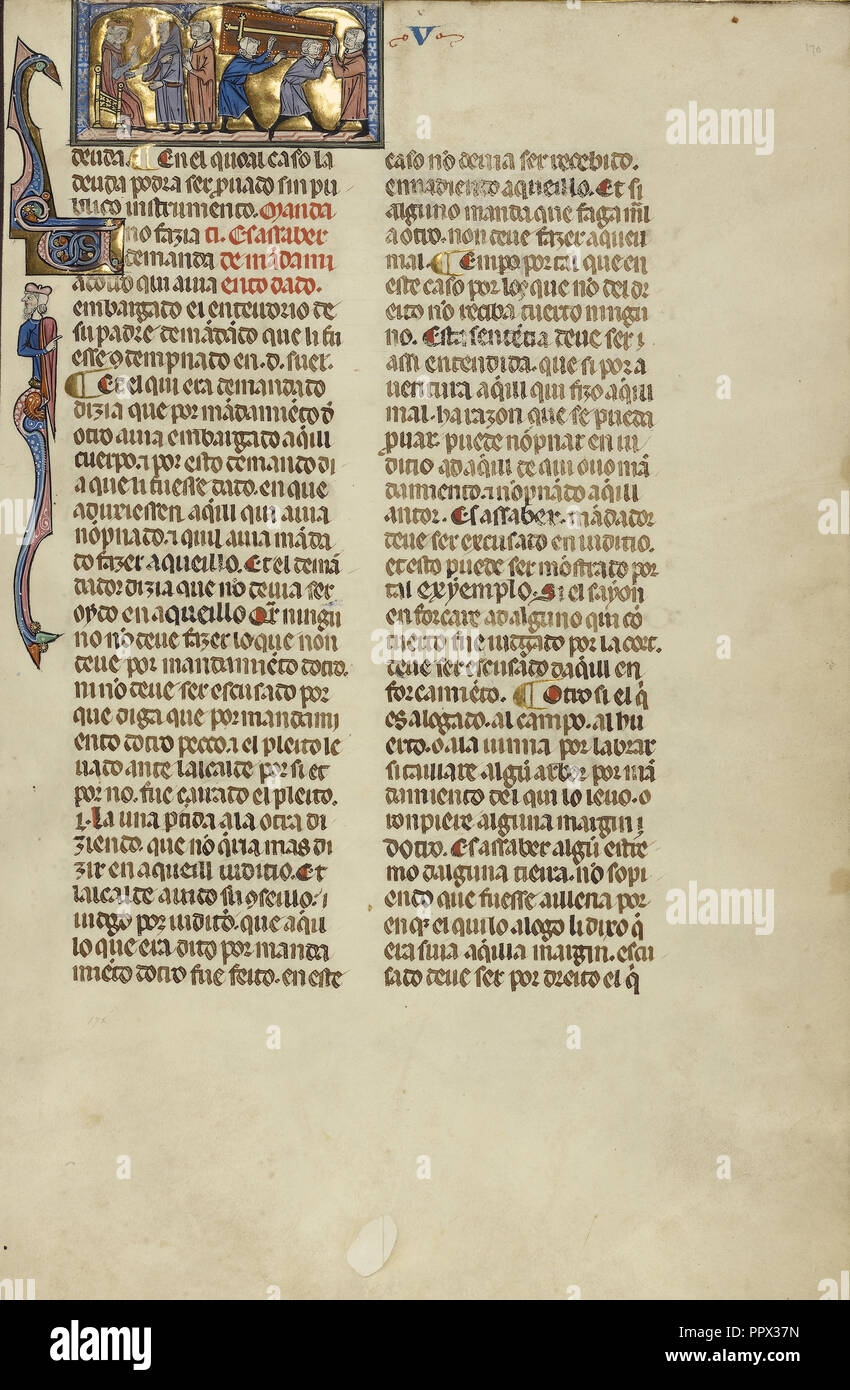 V
170
deuda. En el quoal caso la
deuda podra ser puado sin pu
blico instrumento. Manda
no fazia ti. Es assaber
demanda de mādami
a otro qui auia ento dado.
embargado el enteurorio de
su padre demādādo que li fu
esse 9dempnado en .D. suel.
Et el qui era demandado
dizia que por mādamiēto d
otro auia embargado aqill
cuerpo. ⁊ por esto demando di
a que li fuesse dado. en que
aduxiessen aqill qui auia
nōpnado. ⁊ quil auia māda
do fazer aqueillo. Et el demā
dador dizia que no deuia ser
oydo en aqueillo. Qr ningu
no nō deue fazer lo que non
deue por mandamiēto dotro.
ni nō deue ser escusado por
que diga que por mandami
ento dotro pecco. ⁊ el pleito le
uado ante lalcalde por si et
por no. fue çarrado el pleito.
⁊. la una ptida a la otra di
ziendo. que nō qria mas di
zir en aqueill iuditio. Et
lalcalde auido su 9seillo. ⁊
iudgo por iuditō. que aqu
lo que era dito por manda
miēto dotro fue feito. en este
caso nō deuia ser recebido.
ennadiendo aqueillo. Et si
alguno manda que faga mal
a otro. non deue fazer aqueil
mal. Empo por tal que en
este caso por los que nō del dr
eito nō reciba tuerto ningu
no. Esta sentētia deue ser ⁊
assi entendida. que si por a
uentura aqill qui fizo aqill
mal. ha razon que se pueda
puar. puede nōpnar en iu
ditio ad aqill de qui ouo mā
damiento. ⁊ nōpnādo aqill
auctor. Es assaber. mādador
deue ser excusado en iuditio.
et esto puede ser mōstrado por
tal exyemplo. Si el sayon
enforcare ad alguno qui cō
tuerto fue iudgado por la cort.
deue ser escusādo daqill en
forcamiēto. Otro si el q
es alogado. al campo. al hu
erto. o a la uinna por labrar
si taillare algū arbor por mā
damiento del qui lo leuo. o
ronpiere alguna margin ⁊
Dotro. Es assaber algū estre
mo dalguna tierra. nō sopi
endo que fuesse aillena por
en q el qui lo alogo li dixo q
era suia aqilla margin. escu
sado deue ser por dreito el q
alamy
Image ID: PPX37N
www.alamy.com